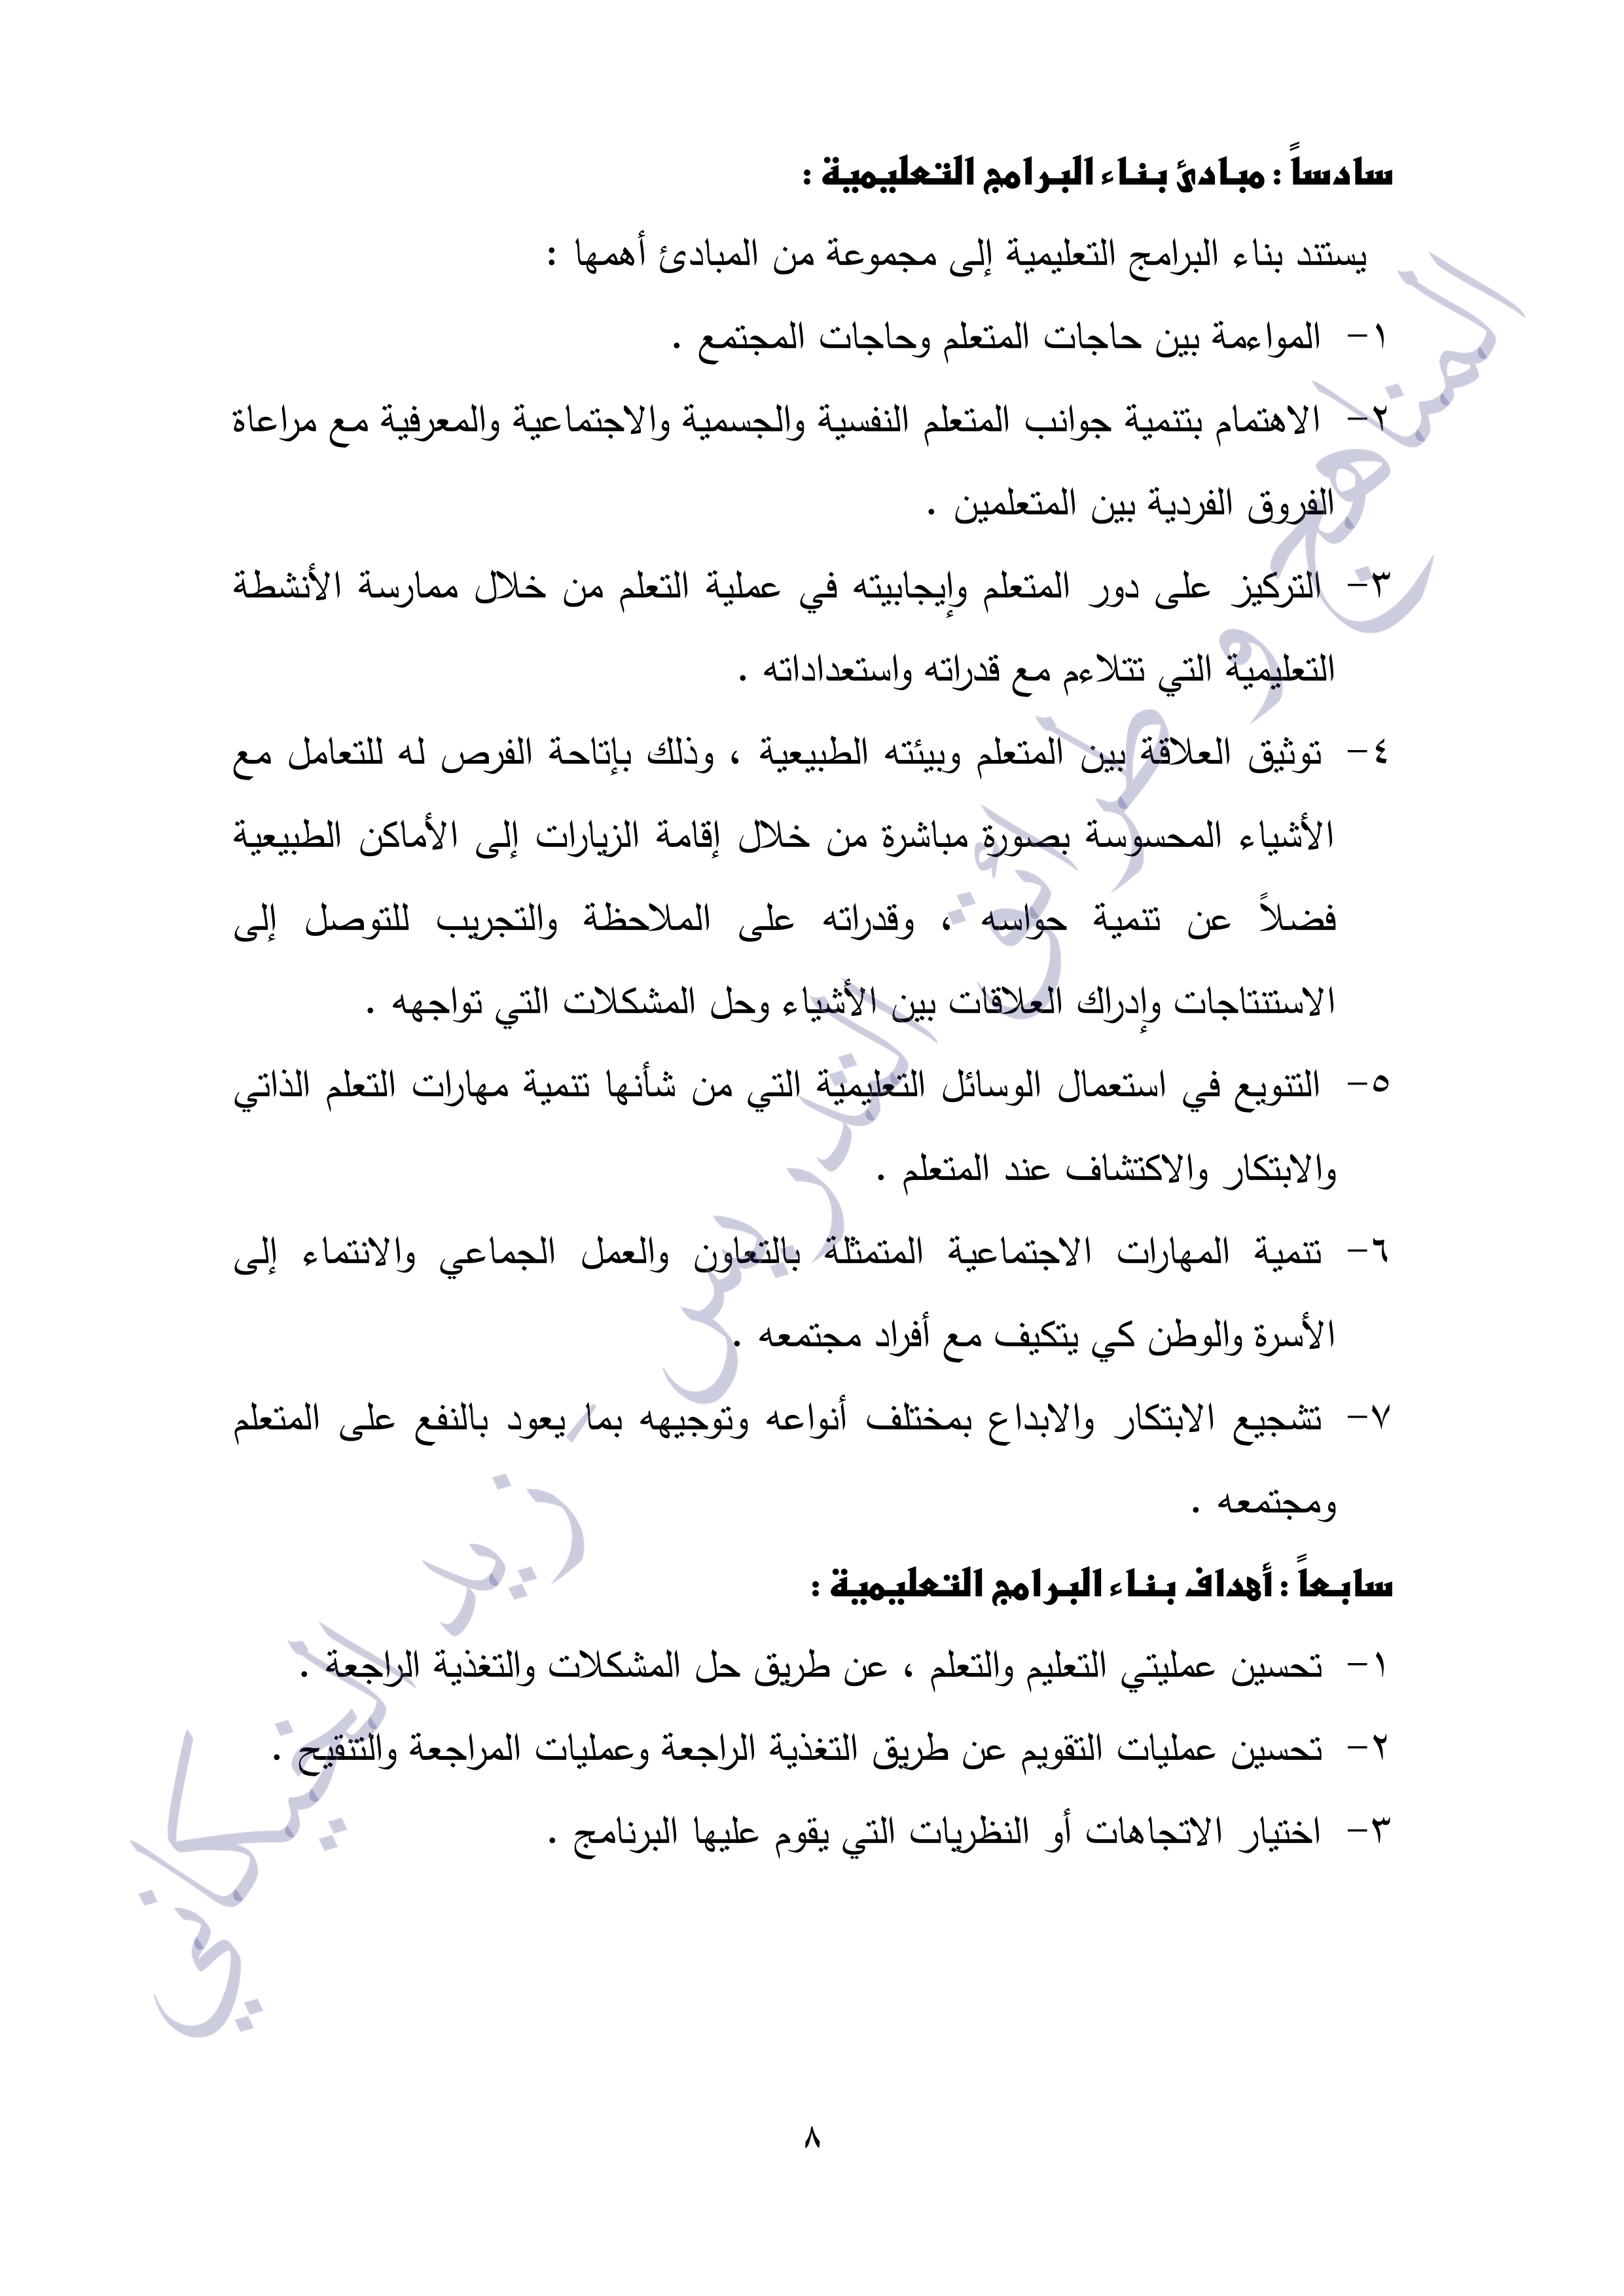 سادساً : مبادئ بناء البرامج التعليمية :
يستند بناء البرامج التعليمية إلى مجموعة من المبادئ أهمها :
١- المواءمة بين حاجات المتعلم وحاجات المجتمع .
٢- الاهتمام بتنمية جوانب المتعلم النفسية والجسمية والاجتماعية والمعرفية مع مراعاة
الفروق الفردية بين المتعلمين .
٣- التركيز على دور المتعلم وإيجابيته في عملية التعلم من خلال ممارسة الأنشطة
التعليمية التي تتلاءم مع قدراته واستعداداته .
٤- توثيق العلاقة بين المتعلم وبيئته الطبيعية ، وذلك بإتاحة الفرص له للتعامل مع
الأشياء المحسوسة بصورة مباشرة من خلال إقامة الزيارات إلى الأماكن الطبيعية
فضلاً عن تنمية حواسه ، وقدراته على الملاحظة والتجريب للتوصل إلى
الاستنتاجات وإدراك العلاقات بين الأشياء وحل المشكلات التي تواجهه .
٥- التنويع في استعمال الوسائل التعليمية التي من شأنها تنمية مهارات التعلم الذاتي
والابتكار والاكتشاف عند المتعلم .
٦- تنمية المهارات الاجتماعية المتمثلة بالتعاون والعمل الجماعي والانتماء إلى
الأسرة والوطن كي يتكيف مع أفراد مجتمعه .
٧- تشجيع الابتكار والابداع بمختلف أنواعه وتوجيهه بما يعود بالنفع على المتعلم
ومجتمعه .
سابعاً : أهداف بناء البرامج التعليمية :
١- تحسين عمليتي التعليم والتعلم ، عن طريق حل المشكلات والتغذية الراجعة .
٢- تحسين عمليات التقويم عن طريق التغذية الراجعة وعمليات المراجعة والتنقيح .
٣- اختيار الاتجاهات أو النظريات التي يقوم عليها البرنامج .
٨
المناهج و طرائق التدريس - زيد الخيكاني